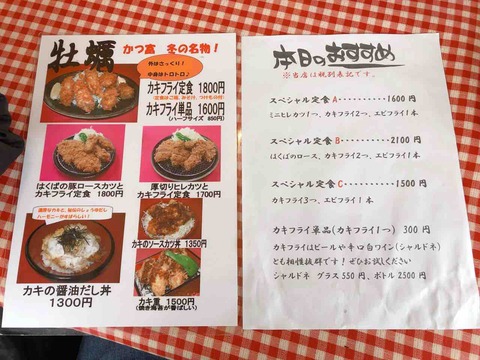 牡蠣
かつ富 冬の名物!
外はさっくり!
中身はトロトロ♪
カキフライ定食 1800円
カキフライ単品 1600円
(ハーフサイズ 850円)
はくばの豚ロースカツと
カキフライ定食 1800円
厚切りヒレカツと
カキフライ定食 1700円
ハーモニーがすばらしい!
カキのソースカツ丼 1350円
カキの醤油だし丼
1300円
カキ重 1500円
(焼き海苔が香ばしい)
本日のおすすめ
※当店は税別表記です。
スペシャル定食 A・・・・・・・・・・1600円
ミニヒレカツ1つ、カキフライ2つ、エビフライ1本
スペシャル定食 B・・・・・・・・・・2100円
はくばのロース、カキフライ2つ、エビフライ1本
スペシャル定食 C・・・・・・・・・・1500円
カキフライ3つ、エビフライ1本
カキフライ単品(カキフライ1つ) 300円
カキフライはビールや辛口白ワイン(シャルドネ)
とも相性抜群です!ぜひお試しください
シャルドネ グラス550円、ボトル2500円